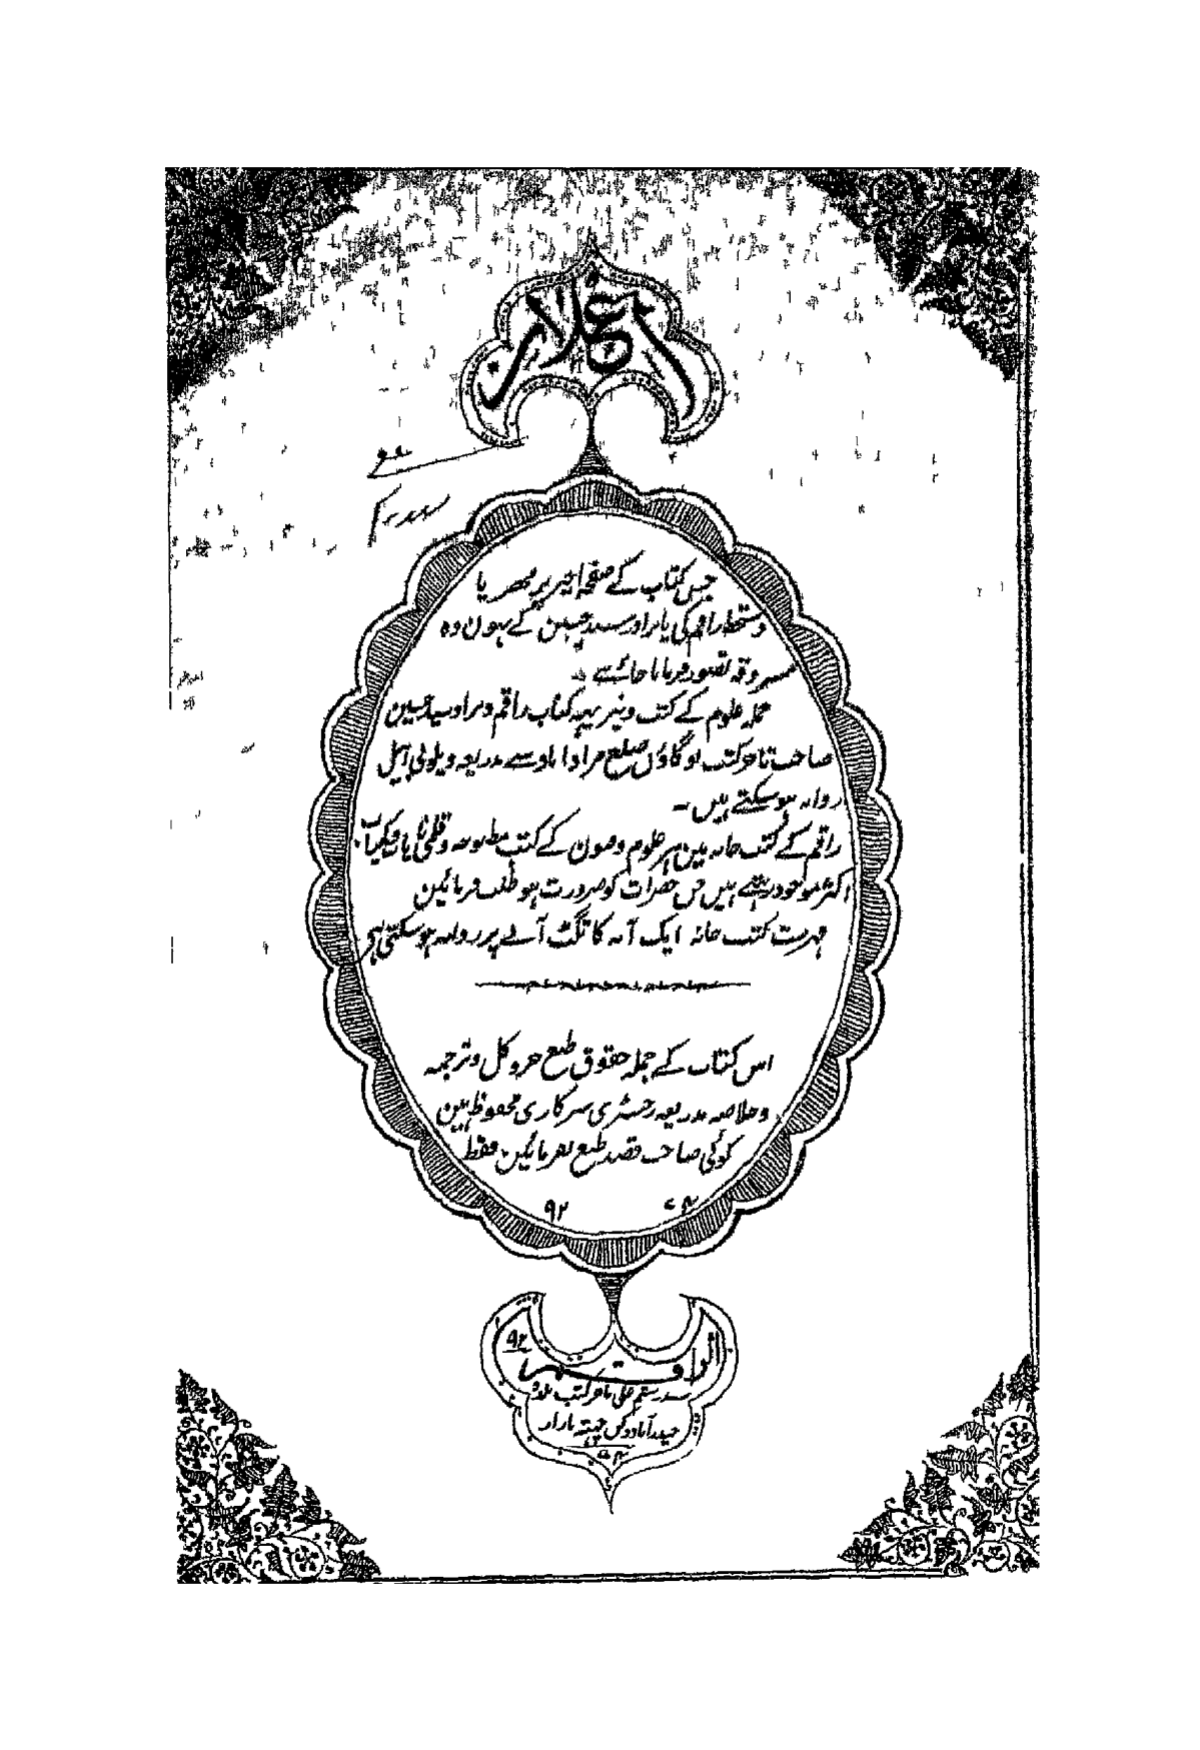 اعلان
جس کتاب کے صفحہ اخیر پر مہر یا
دستخط راقم کی یا برادر سید حسین کے نہون وہ
مسروقہ تصور فرمانا چاہئے
جملہ علوم کے کتب و نیز یہہ کتاب راقم و برادر سید حسین
صاحب تاجر کتب نوگاؤں ضلع مرادآباد سے بذریعہ ویلوپی ایبل
روانہ ہو سکتے ہیں۔
راقم کے کتب خانہ مین ہر علوم و فنون کے کتب مطبوعہ و قلمی نایاب و کمیاب
اکثر موجود رہتے ہیں جن حضرات کو ضرورت ہو طلب فرمائین
فہرست کتب خانہ ایک آنہ کا ٹکٹ آنے پر روانہ ہو سکتی ہی
اس کتاب کے جملہ حقوق طبع جز و کل و ترجمہ
و خلاصہ بذریعہ رجسٹری سرکاری محفوظ ہین
کوئی صاحب قصد طبع نفرمائین فقط
۹۲
الراقم
۹۲
سید رستم علی تاجر کتب
حیدرآباد دکن چھتہ بازار